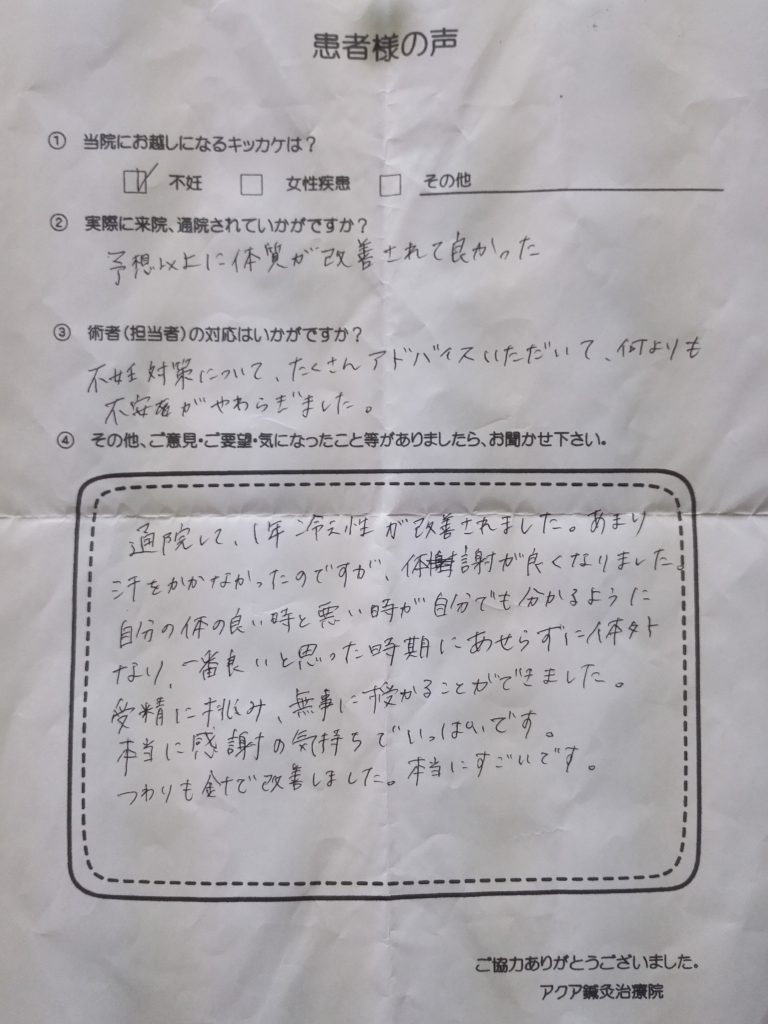 患者様の声
① 当院にお越しになるキッカケは？
不妊 女性疾患 その他
② 実際に来院、通院されていかがですか？
予想以上に体質が改善されて良かった
③ 術者（担当者）の対応はいかがですか？
不妊対策について、たくさんアドバイスいただいて、何よりも
不安がやわらぎました。
④ その他、ご意見・ご要望・気になったこと等がありましたら、お聞かせ下さい。
通院して、1年 冷え性が改善されました。あまり
汗をかかなかったのですが、体謝が良くなりました。
自分の体の良い時と悪い時が自分でも分かるように
なり、一番良いと思った時期にあせらずに体外
受精に挑み、無事に授かることができました。
本当に感謝の気持ちでいっぱいです。
つわりも針で改善しました。本当にすごいです。
ご協力ありがとうございました。
アクア鍼灸治療院